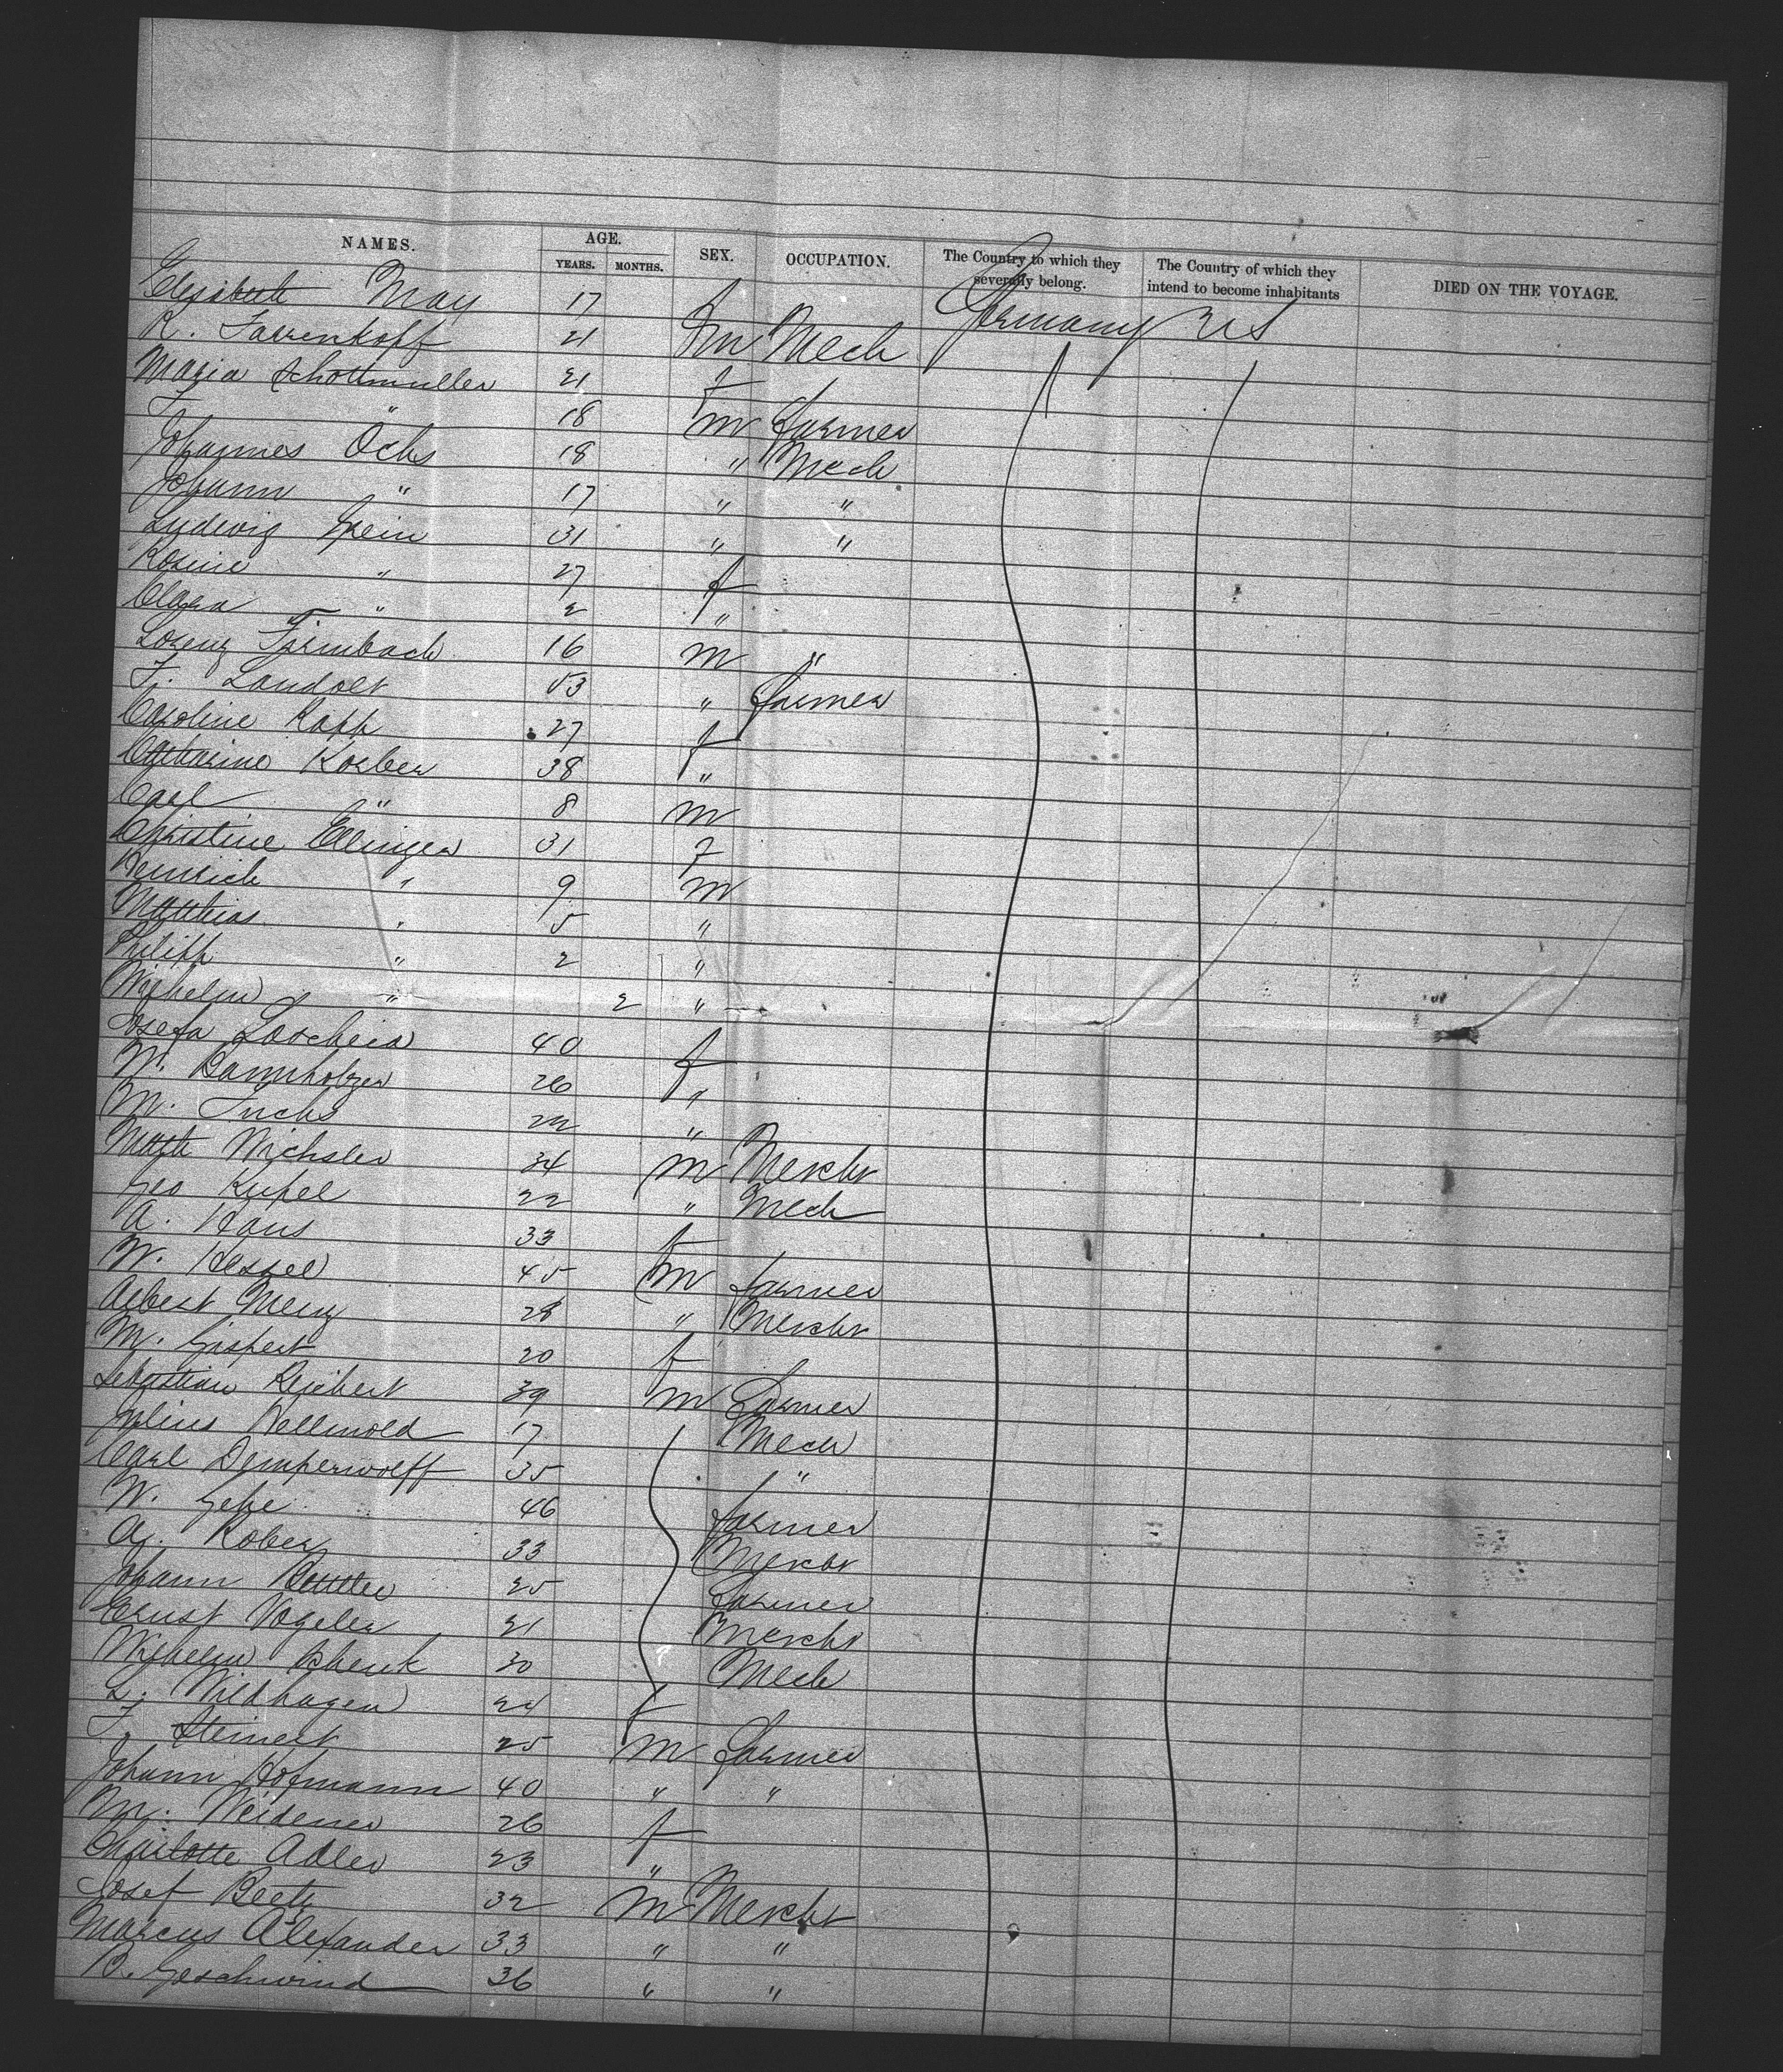 NAMES. AGE. SEX. OCCUPATION. The Country to which they severally belong. The Country of which they intend to become inhabitants DIED ON THE VOYAGE.
YEARS. MONTHS.
Elizabeth May 17 f Germany U S
R. Farrenkopf 21 m Mech
Maria Schottmuller 21 f
F. " 18 m farmer
Johannes Ochs 18 " Mech
Johann " 17 " "
Ludwig Hein 31 " "
Rosine " 27 f
Clara " 2 "
Lorenz Firmbach 16 m "
F. Landolt 53 " farmer
Caroline Rapp 27 f
Catharine Korber 38 "
Carl " 8 m
Christine Ellinger 31 f
Heinrich " 9 m
Matthias " 5 "
Philipp " 2 "
Wilhelm " 2 "
Josefa 40 f
W. Bannholzer 26 "
M. Fuchs 22 "
Math Wichsler 34 m Mercht
Geo Kupel 22 " Mech
A. Haus 33 f
W. Hessel 45 m farmer
Albert Merz 28 " Mercht
M. Gispert 20 f
Sebastian Reichert 39 m Farmer
Julius Wellinold 17 Mech
Carl Demperwolff 35 "
W. Gehe 46 farmer
A. Kober 33 Mercht
Johann 25 Farmer
Ernst Vogeler 21 Mercht
Wilhelm Schenk 30 Mech
L. Wildhagen 24 f
F. Steinert 25 m Farmer
Johann Hofmann 40 " "
M. Weidener 26 f
Charlotte Adler 23 "
Josef Beetz 32 m Mercht
Marcus Alexander 33 " "
B. Geschwind 36 " "